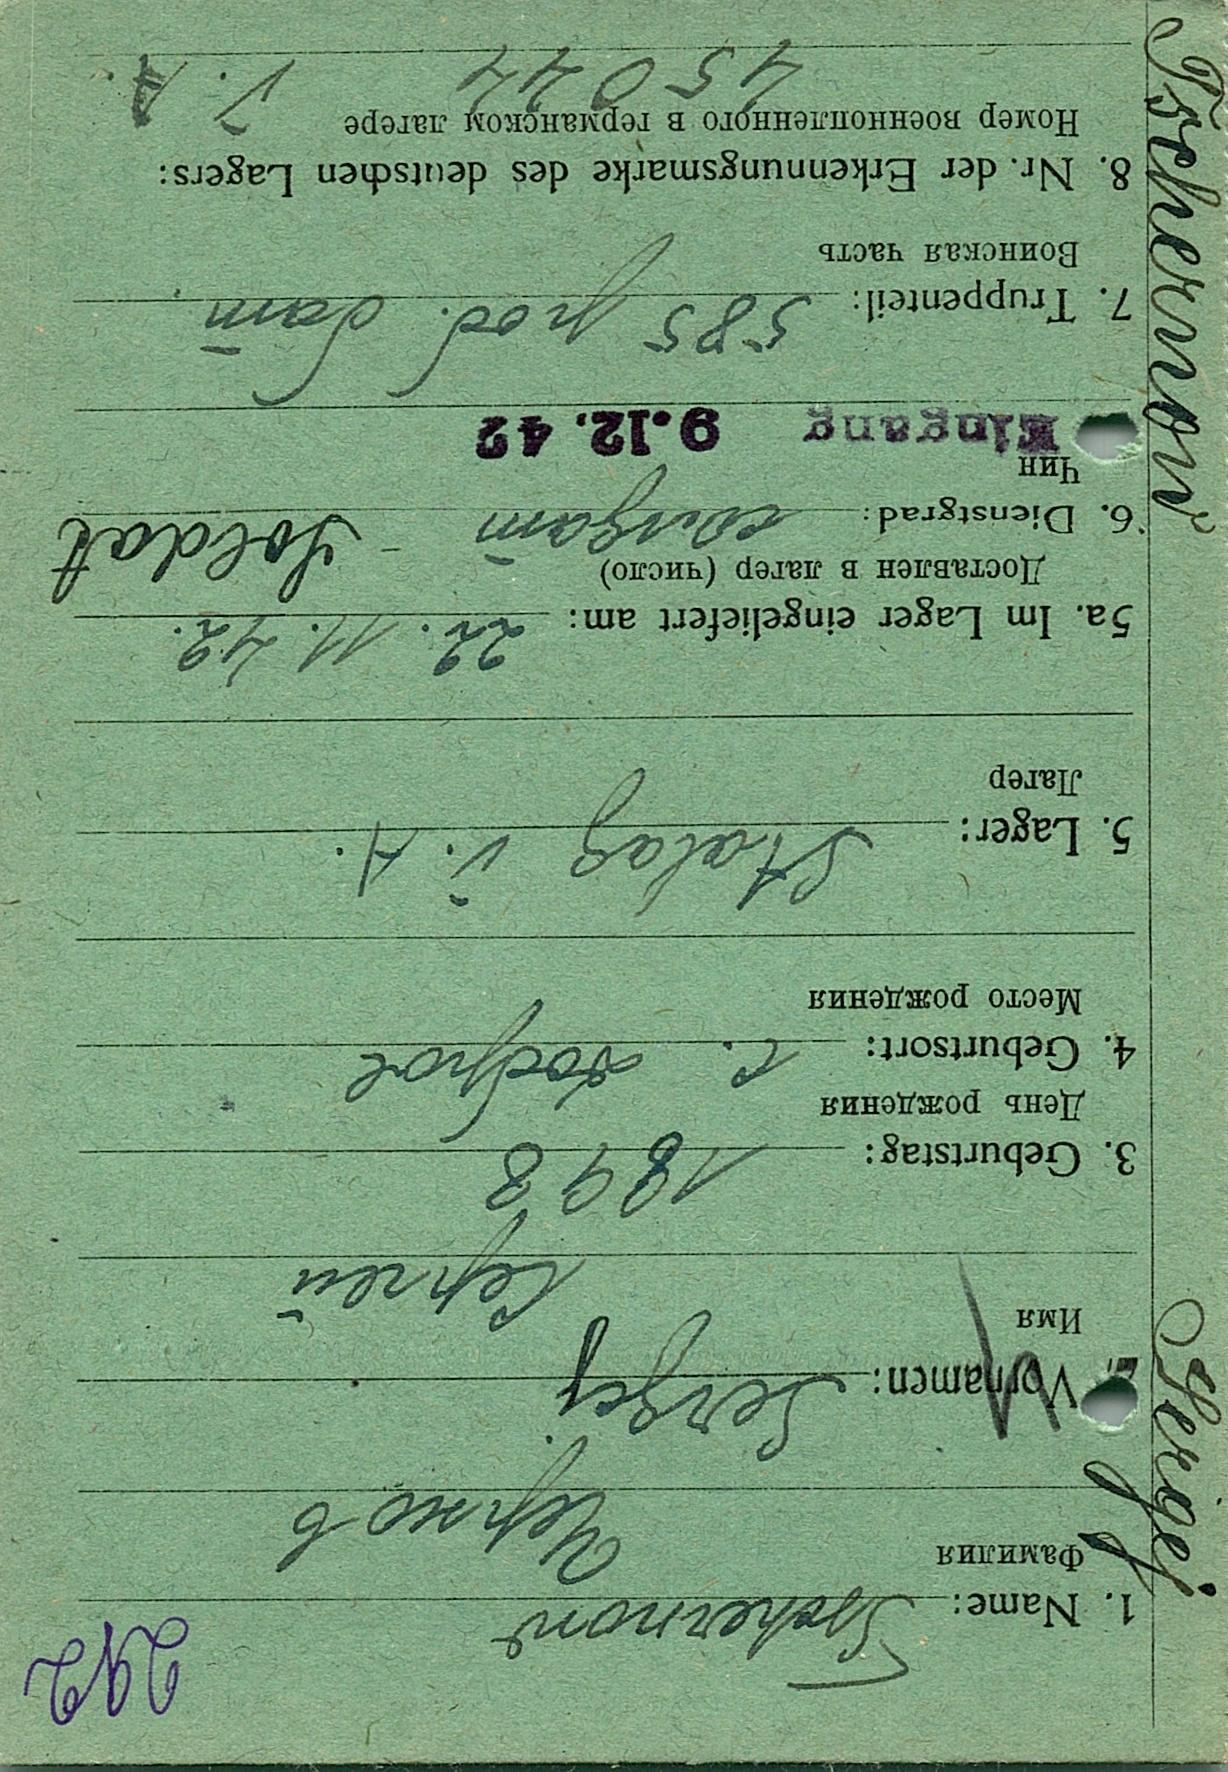 292
Tschernow Sergej
1. Name: Tschernow
Фамилия
Чернов
2. Vornamen: Sergej
Имя
Сергей
3. Geburtstag: 1898
День рождения
4. Geburtsort: с.
Место рождения
5. Lager: Stalag V. A.
Лагерь
5a. Im Lager eingeliefert am: 22. 11. 42.
Доставлен в лагерь (число)
6. Dienstgrad: - Soldat
Чин
Eingang 9.12.42
7. Truppenteil: 585
Воинская часть
8. Nr. der Erkennungsmarke des deutschen Lagers:
Номер военнопленного в германском лагере
45044 V. A.